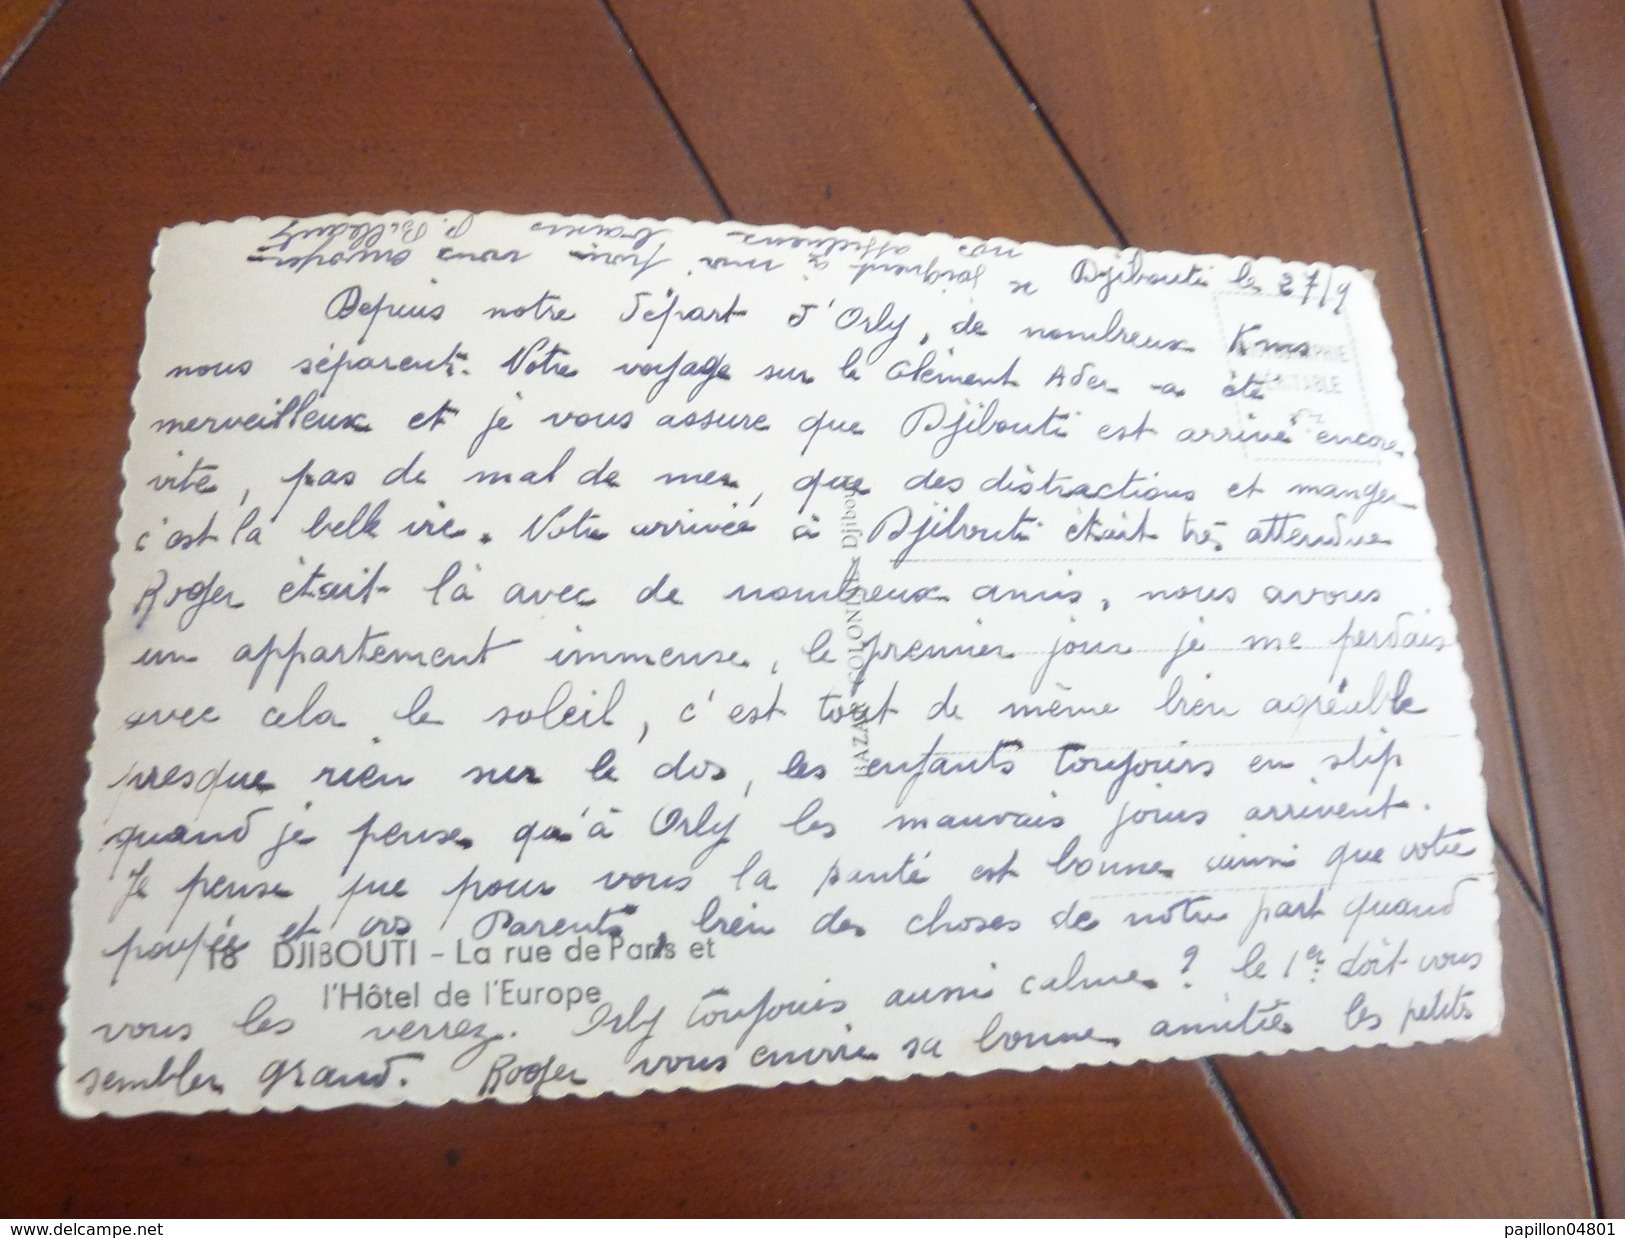 Djibouti le 27/9
Depuis notre départ d'Orly, de nombreux Kms
nous séparent. Notre voyage sur le Clément Ader a été
merveilleux et je vous assure que Djibouti est arrivé encore
vite, pas de mal de mer, que des distractions et manger
c'est la belle vie. Notre arrivée à Djibouti était très attendue
Roger était là avec de nombreux amis, nous avons
un appartement immense, le premier jour je me perdais
avec cela le soleil, c'est tout de même bien agréable
presque rien sur le dos, les enfants toujours en slip
quand je pense qu'à Orly les mauvais jours arrivent.
Je pense que pour vous la santé est bonne ainsi que votre
poupée et vos Parents, bien des choses de notre part quand
18 DJIBOUTI - La rue de Paris et
l'Hôtel de l'Europe
vous les verrez. Orly toujours aussi calme ? le 1er doit vous
sembler grand. Roger vous envoie sa bonne amitié les petits
se joignent à moi pour vous envoyer
nos affectueux baisers P. Billaudy
BAZAR COLONIAL - Djibouti
PHOTOGRAPHIE
VÉRITABLE
www.delcampe.net
papillon04801